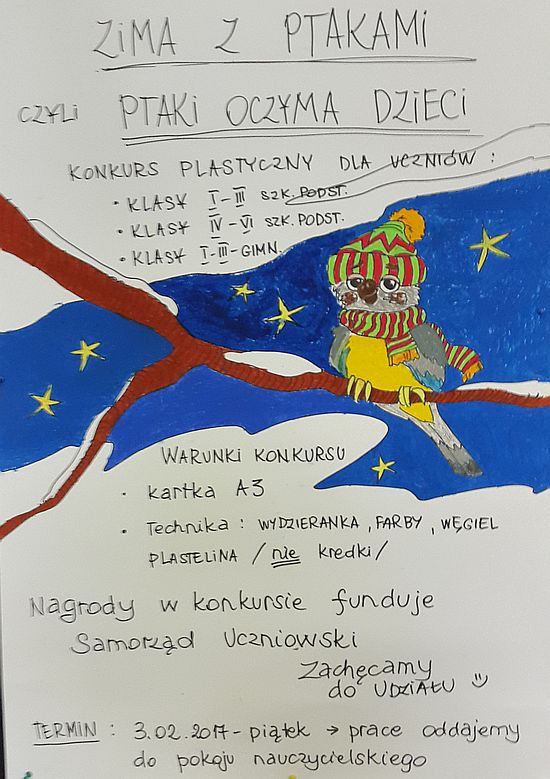 ZIMA Z PTAKAMI
CZYLI PTAKI OCZYMA DZIECI
KONKURS PLASTYCZNY DLA UCZNIÓW:
• KLASY I-III SZK. PODST.
• KLASY IV-VI SZK. PODST.
• KLASY I-III-GIMN.
WARUNKI KONKURSU
• kartka A3
• Technika: WYDZIERANKA, FARBY, WĘGIEL
PLASTELINA /nie kredki/
Nagrody w konkursie funduje
Samorząd Uczniowski
Zachęcamy
do UDZIAŁU
TERMIN: 3.02.2017- piątek → prace oddajemy
do pokoju nauczycielskiego